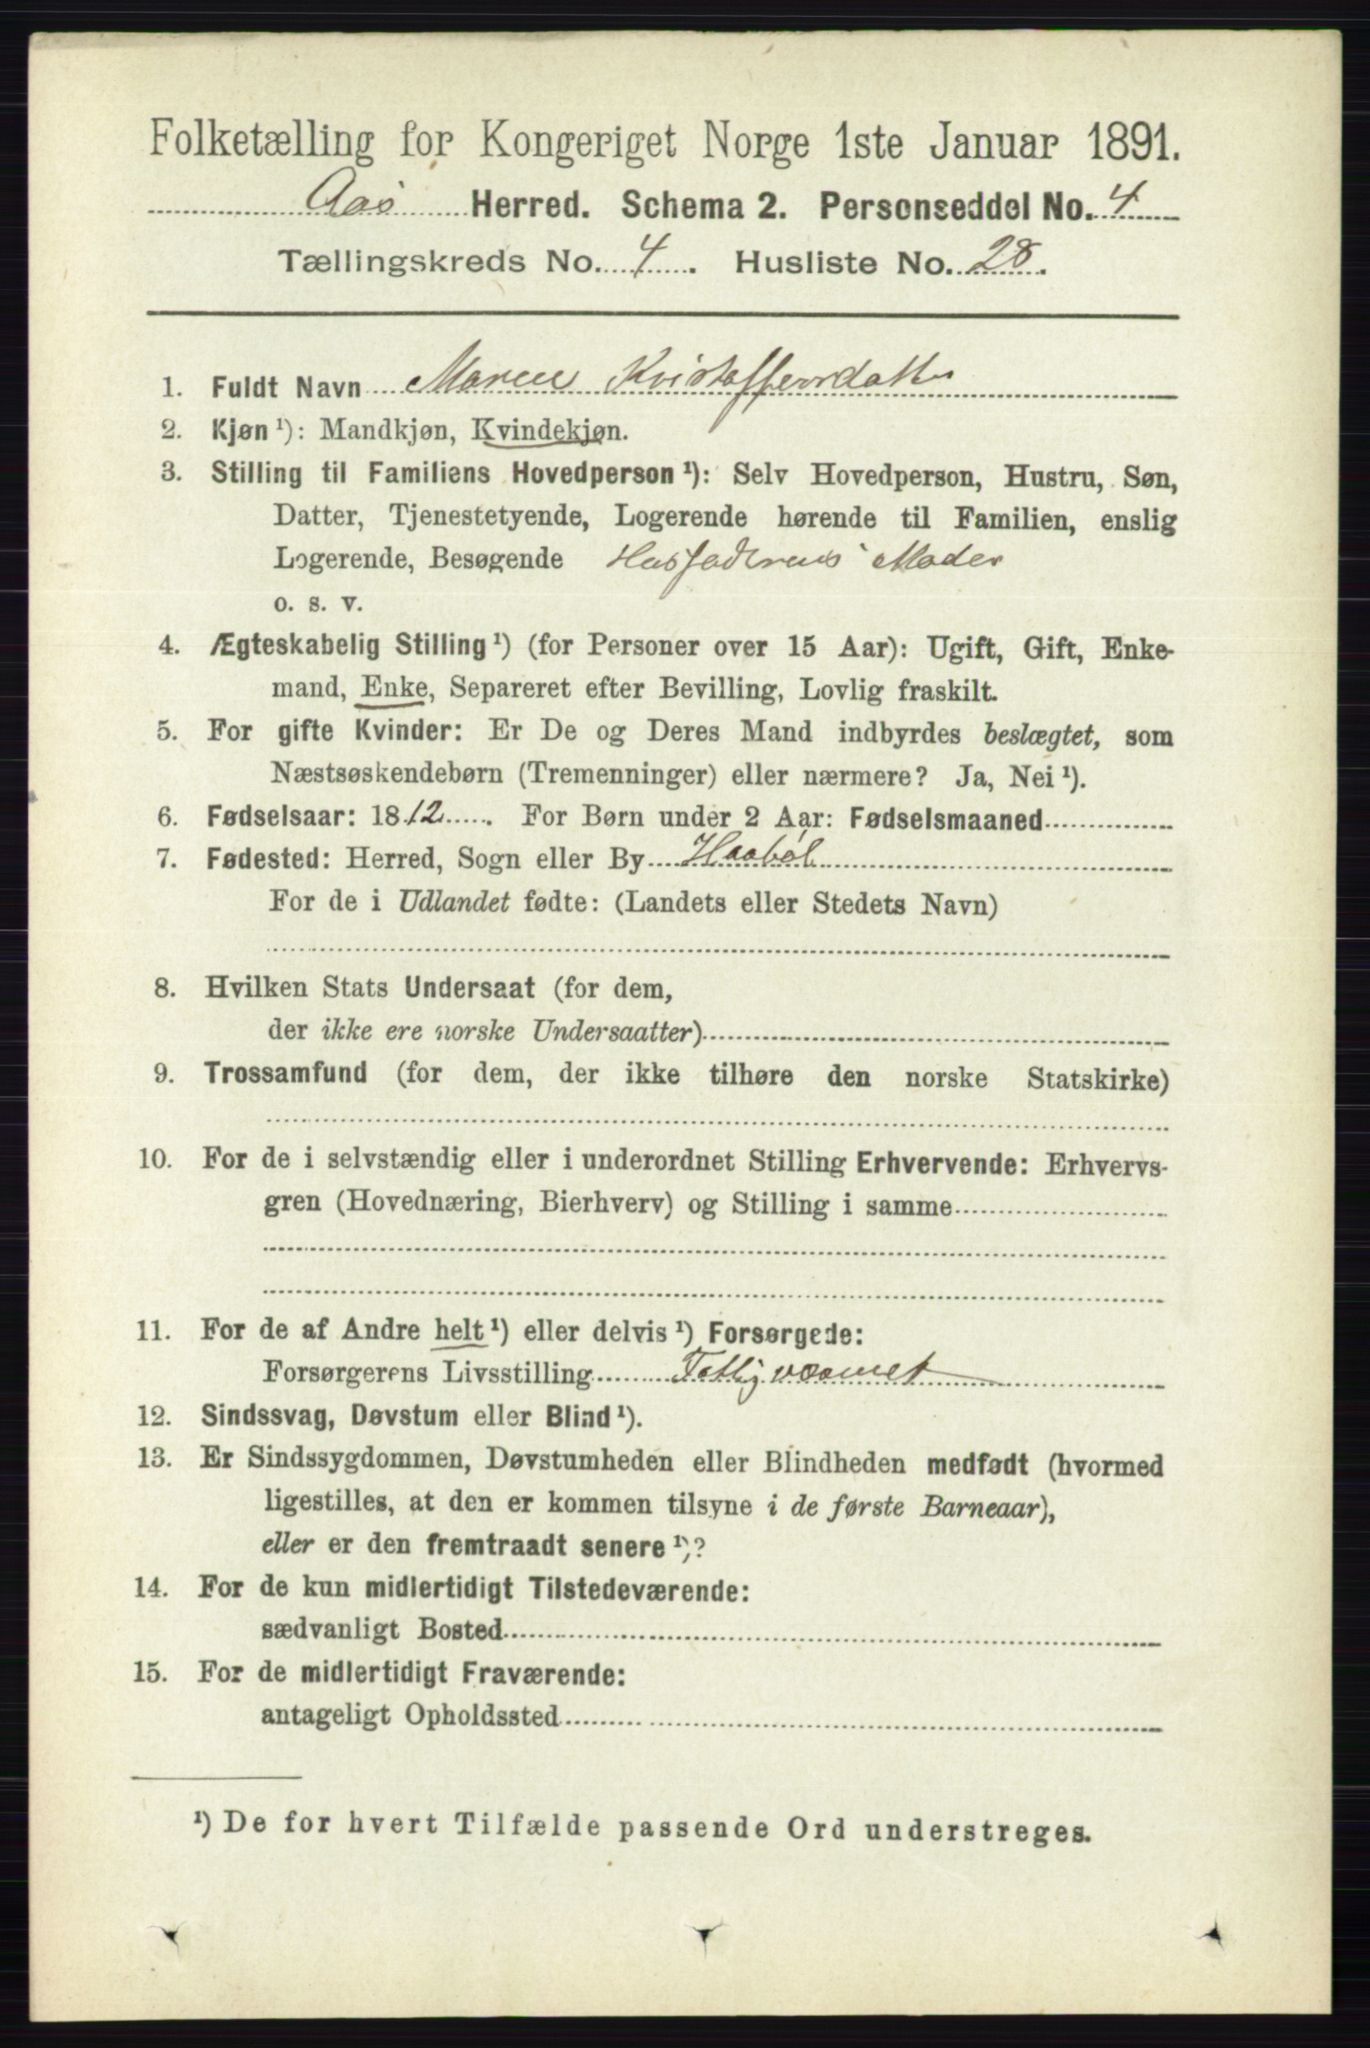 Folketælling for Kongeriget Norge 1ste Januar 1891.
Aas Herred. Schema 2. Personseddel No. 4
Tællingskreds No. 4. Husliste No. 28.
1. Fuldt Navn Maren Kristoffersdatter
2. Kjøn ¹): Mandkjøn, Kvindekjøn.
3. Stilling til Familiens Hovedperson ¹): Selv Hovedperson, Hustru, Søn,
Datter, Tjenestetyende, Logerende hørende til Familien, enslig
Logerende, Besøgende Husfaderens Moder
o. s. v.
4. Ægteskabelig Stilling ¹) (for Personer over 15 Aar): Ugift, Gift, Enke-
mand, Enke, Separeret efter Bevilling, Lovlig fraskilt.
5. For gifte Kvinder: Er De og Deres Mand indbyrdes beslægtet, som
Næstsøskendebørn (Tremenninger) eller nærmere? Ja, Nei ¹).
6. Fødselsaar: 1812. For Børn under 2 Aar: Fødselsmaaned
7. Fødested: Herred, Sogn eller By Haabøl
For de i Udlandet fødte: (Landets eller Stedets Navn)
8. Hvilken Stats Undersaat (for dem,
der ikke ere norske Undersaatter)
9. Trossamfund (for dem, der ikke tilhøre den norske Statskirke)
10. For de i selvstændig eller i underordnet Stilling Erhvervende: Erhvervs-
gren (Hovednæring, Bierhverv) og Stilling i samme
11. For de af Andre helt ¹) eller delvis ¹) Forsørgede:
Forsørgerens Livsstilling
12. Sindssvag, Døvstum eller Blind ¹).
13. Er Sindssygdommen, Døvstumheden eller Blindheden medfødt (hvormed
ligestilles, at den er kommen tilsyne i de første Barneaar),
eller er den fremtraadt senere ¹)?
14. For de kun midlertidigt Tilstedeværende:
sædvanligt Bosted
15. For de midlertidigt Fraværende:
antageligt Opholdssted
¹) De for hvert Tilfælde passende Ord understreges.